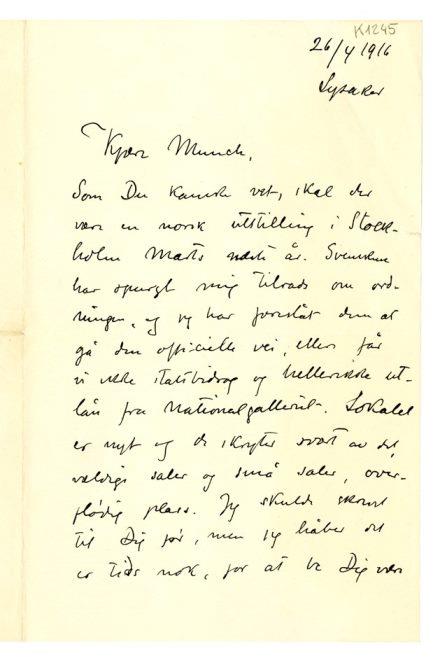 K1245
26/4 1916
Lysaker
Kjære Munch,
Som Du kanske vet, skal der
være en norsk utstilling i Stock-
holm Marts næste år. Svenskene
har spurgt mig tilråds om ord-
ningen, og jeg har foreslåt dem at
gå den officielle vei, ellers får
vi ikke statsbidrag og hellerikke ut-
lån fra Nationalgalleriet. Lokalet
er nyt og de skryter svært av det
vældige saler og små saler, over-
flødig plass. Jeg skulde skrevet
til Dig før, men jeg håber det
er tids nok, for at be Dig være